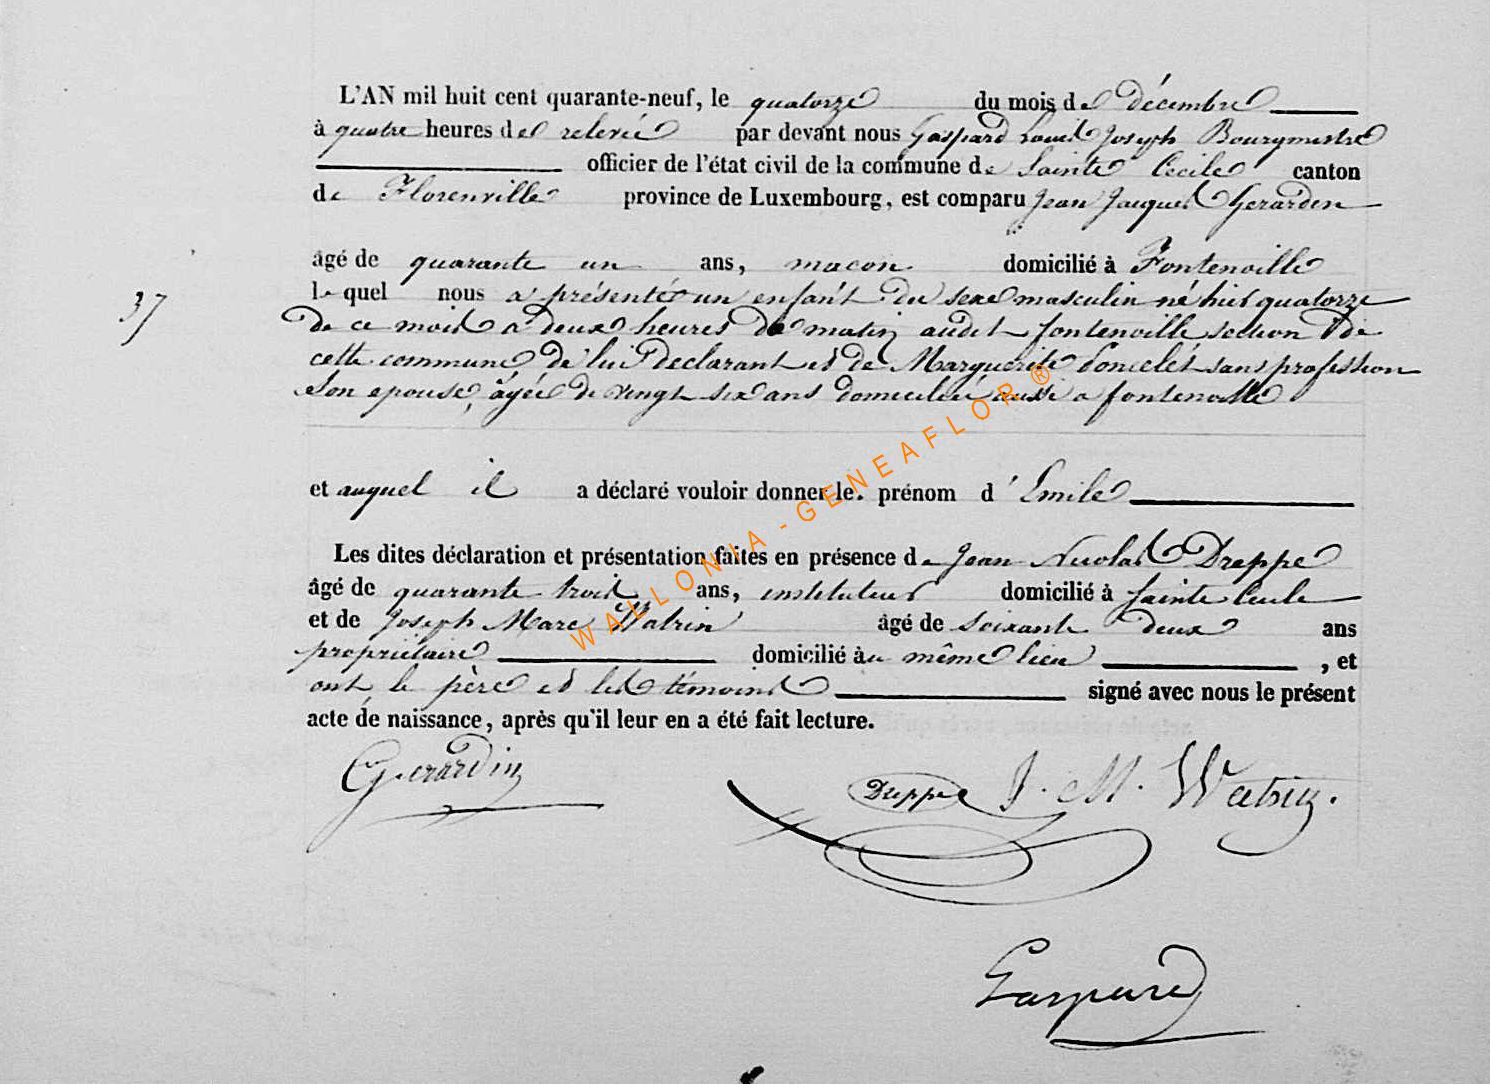 L'AN mil huit cent quarante-neuf, le quatorze du mois de décembre
à quatre heures de relevée par devant nous Gaspard Louis Joseph Bourgmestre
officier de l'état civil de la commune de Sainte Cecile canton
de Florenville province de Luxembourg, est comparu Jean Jacques Gerardin
âgé de quarante un ans, macon domicilié à Fontenoille
37
le quel nous a présenté un enfant du sexe masculin né hier quatorze
de ce mois a deux heures du matin audit fontenoille section de
cette commune de lui declarant et de Marguerite Poncelet sans profession
son epouse, âgée de vingt six ans domiciliée aussi a fontenoille
et auquel il a déclaré vouloir donner le. prénom d'Emile
Les dites déclaration et présentation faites en présence de Jean Nicolas Dreppe
âgé de quarante trois ans, instituteur domicilié à Sainte Cecile
et de Joseph Marc Watrin âgé de soixante deux ans
propriétaire domicilié au même lieu , et
ont le père et les témoins signé avec nous le présent
acte de naissance, après qu'il leur en a été fait lecture.
Gerardin
Dreppe J. M. Watrin.
Gaspard
WALLONIA - GENEAFLOR ®